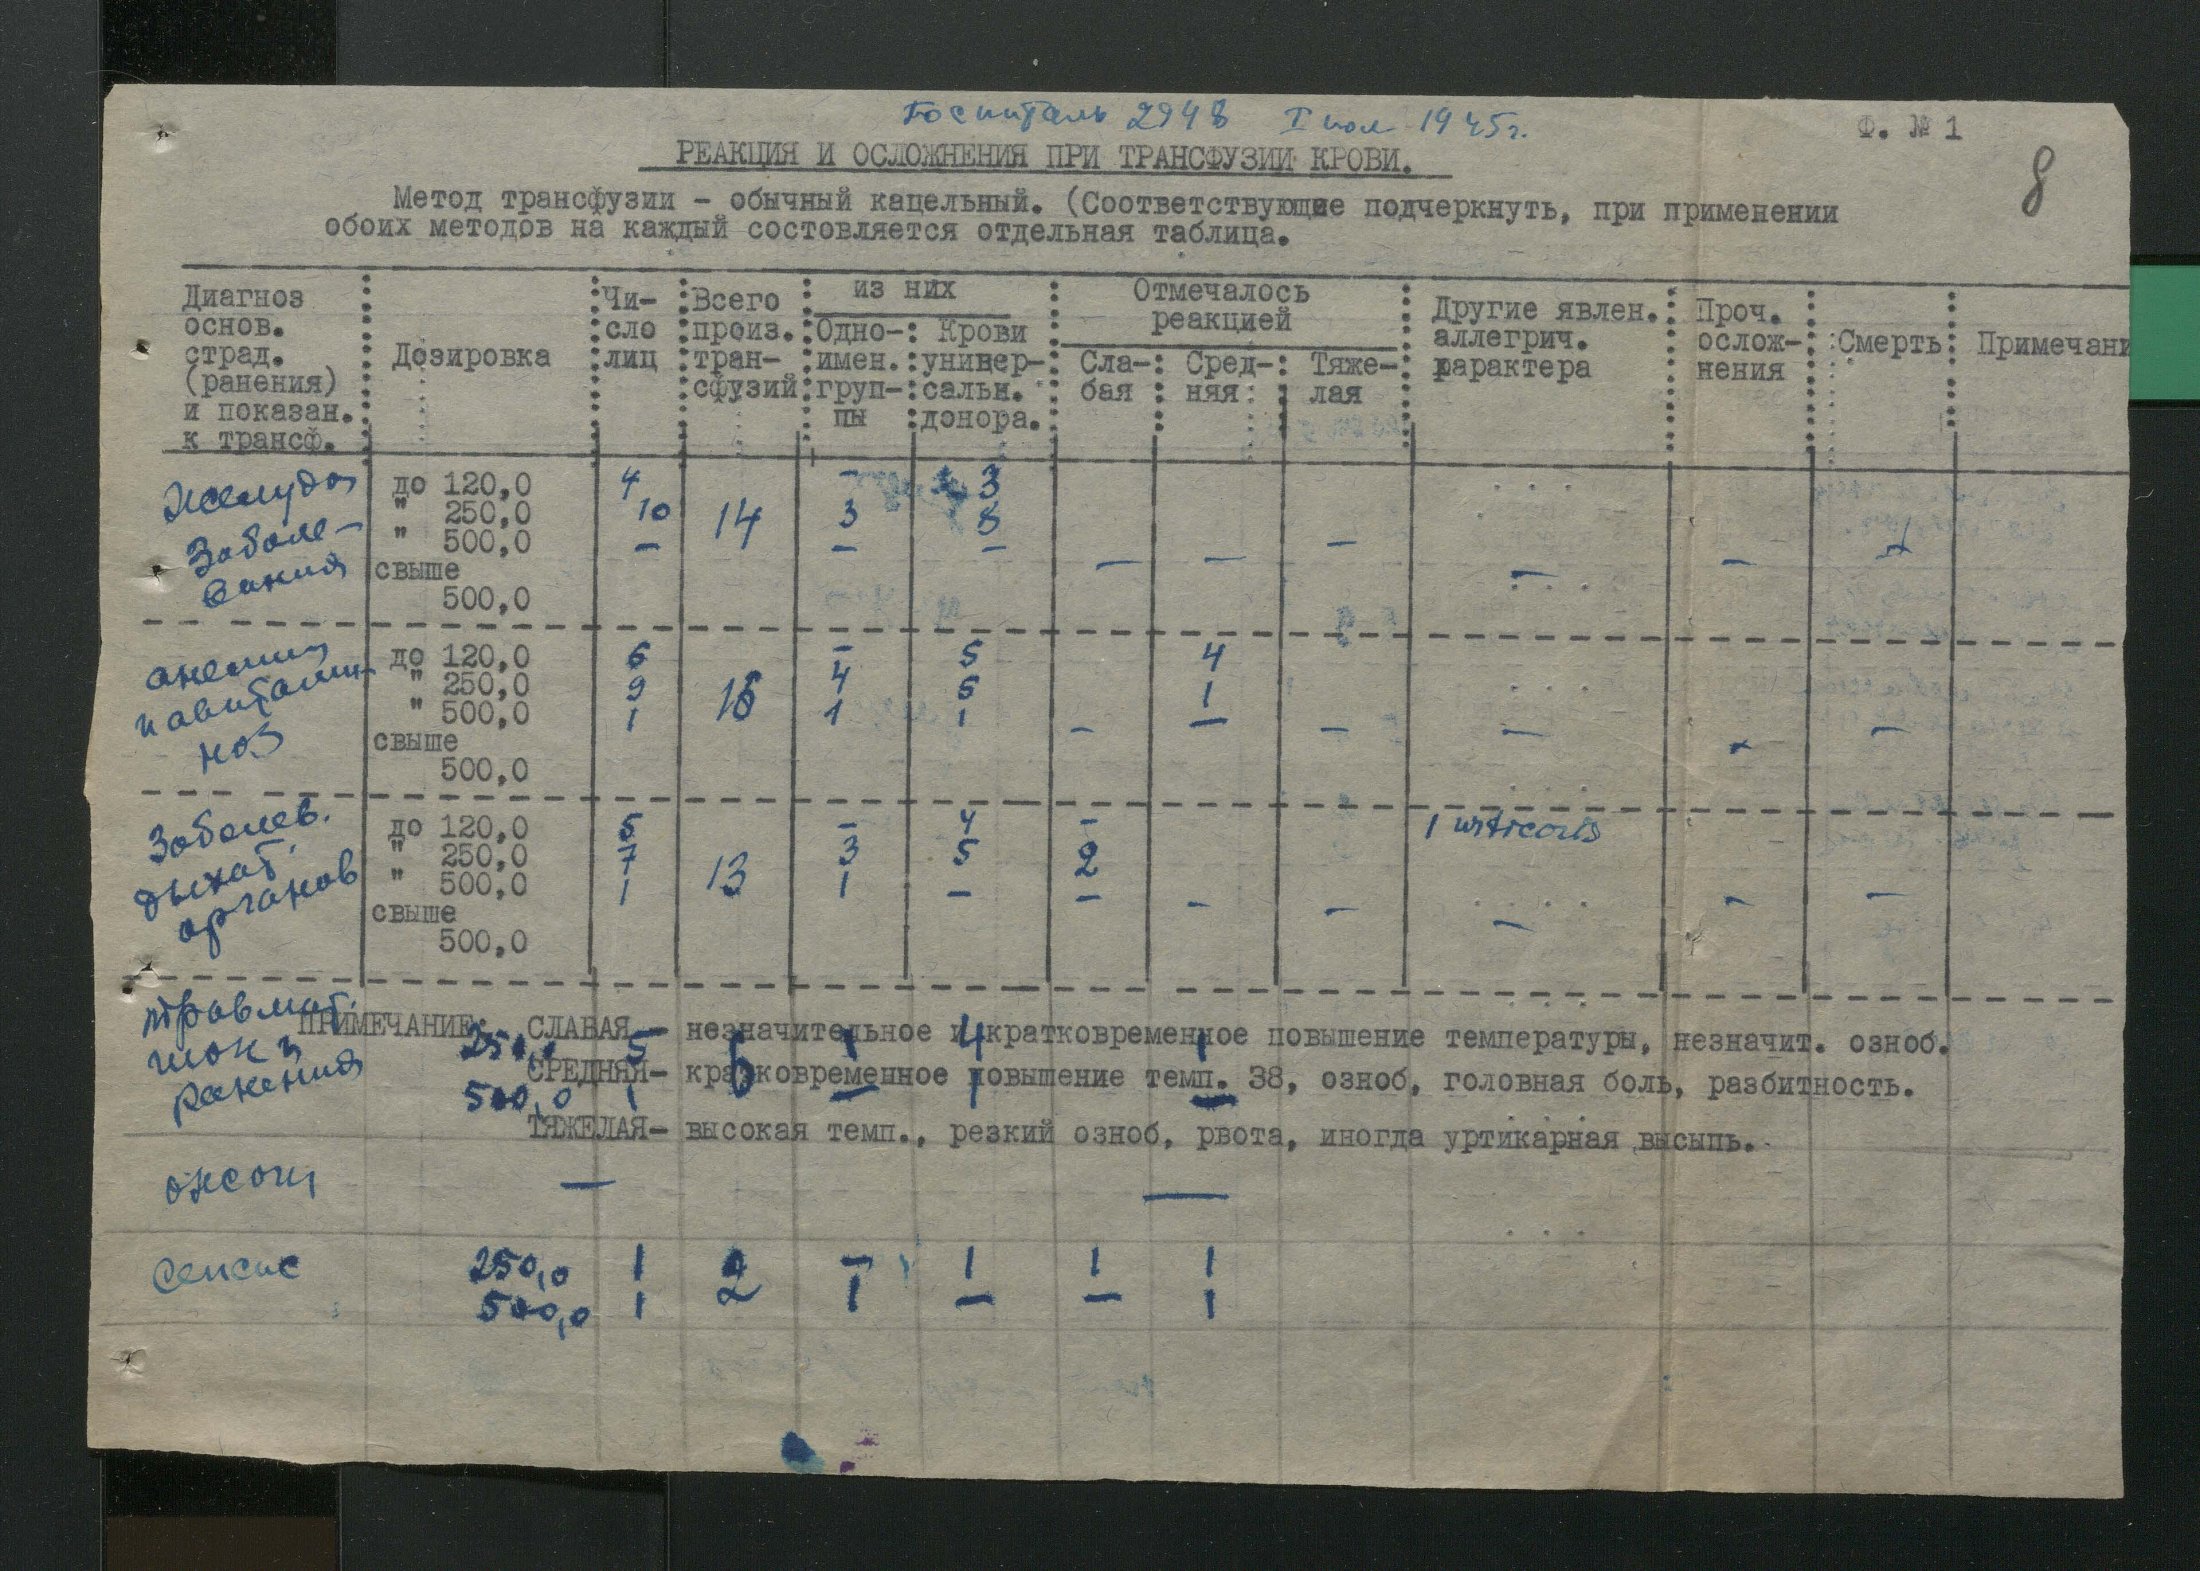 Госпиталь 2948 I пол 1945г.
Ф. № 1
8
РЕАКЦИЯ И ОСЛОЖНЕНИЯ ПРИ ТРАНСФУЗИИ КРОВИ.
Метод трансфузии - обычный кацельный. (Соответствующие подчеркнуть, при применении
обоих методов на каждый состовляется отдельная таблица.
Диагноз основ. страд. (ранения) и показан. к трансф. Дозировка Чи-сло лиц Всего произ. тран-сфузий из них Одно-имен. груп-пы Крови универ-сальн. донора. Отмечалось реакцией Сла-бая Сред-няя Тяже-лая Другие явлен. аллегрич. характера Проч. ослож-нения Смерть Примечани
Желудоч до 120,0 4 - 3
заболе- " 250,0 10 14 3 8
вания " 500,0 - - - - - - - - -
свыше
500,0
анемии до 120,0 6 - 5 4
и авитамин " 250,0 9 16 4 5 1
ноз " 500,0 1 1 1 - - - - -
свыше
500,0
Заболев. до 120,0 5 - 4 - 1 urticaris
дыхат. " 250,0 7 13 3 5 2
органов " 500,0 1 1 - - - - - - -
свыше
500,0
травмат.
шок и
ранения
250,0 5 6 1 4 1
500,0 1 - 1 -
ПРИМЕЧАНИЕ: СЛАБАЯ - незначительное и кратковременное повышение температуры, незначит. озноб.
СРЕДНЯЯ- кратковременное повышение темп. 38, озноб, головная боль, разбитность.
ТЯЖЕЛАЯ- высокая темп., резкий озноб, рвота, иногда уртикарная высыпь.
ожоги — —
Сепсис 250,0 1 2 - 1 1 1
500,0 1 1 - - 1